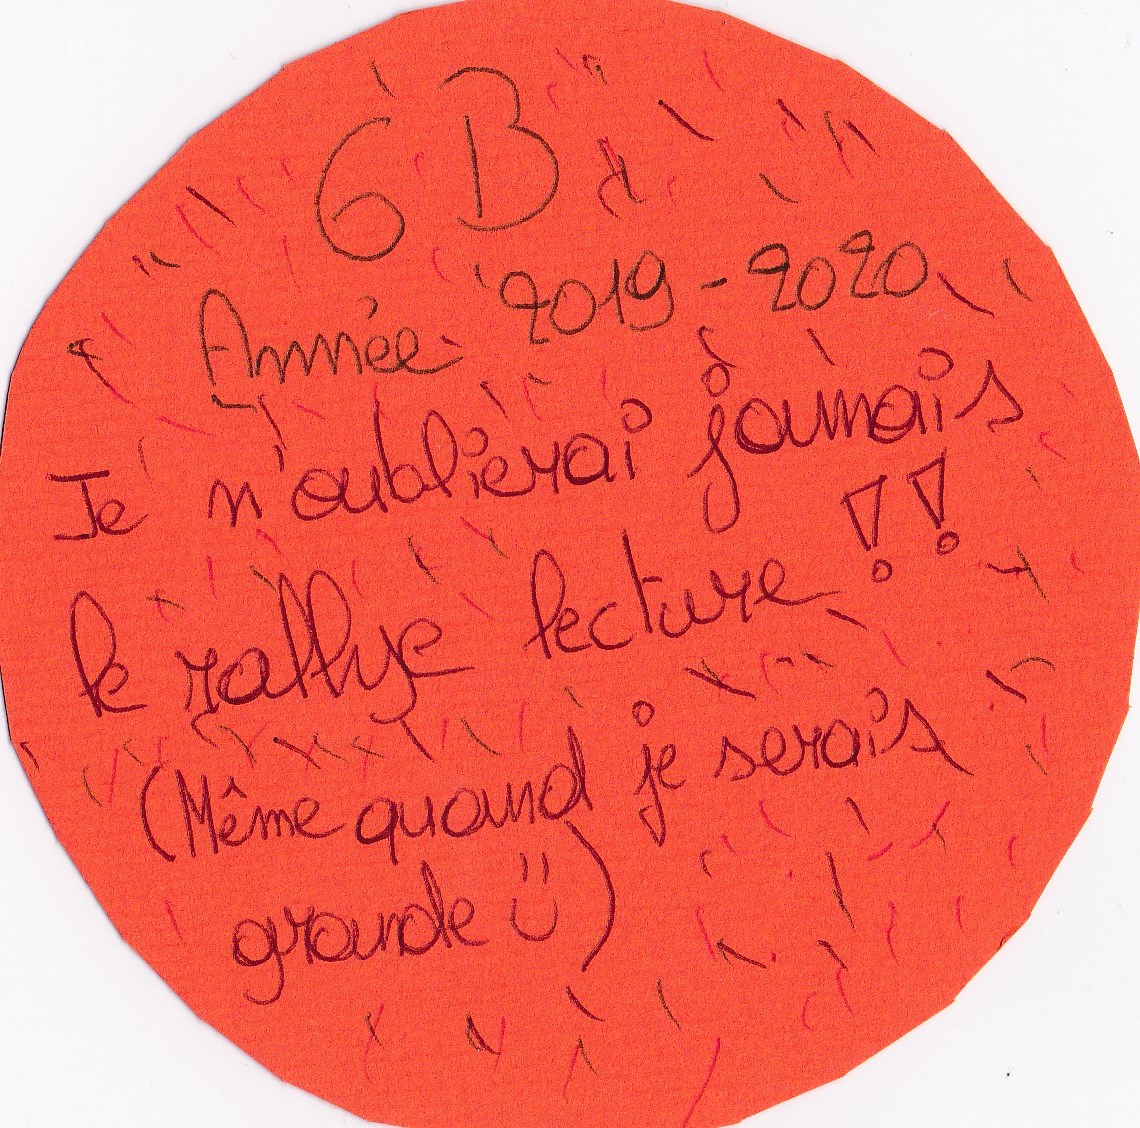 6B
Année 2019-2020
Je n'oublierai jamais
le rallye lecture !!
(Même quand je serais
grande ü)